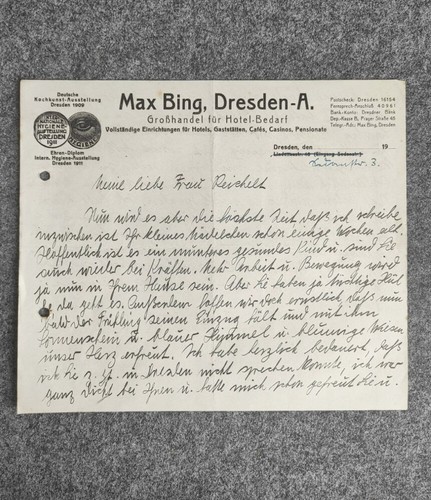 Deutsche
Kochkunst-Ausstellung
Dresden 1909
HYGIENE
AUSSTELLUNG
DRESDEN
1911
Ehren-Diplom
Intern. Hygiene-Ausstellung
Dresden 1911
Max Bing, Dresden-A.
Großhandel für Hotel-Bedarf
Vollständige Einrichtungen für Hotels, Gaststätten, Cafés, Casinos, Pensionate
Postscheck: Dresden 16154
Fernsprech-Anschluß 40961
Bank-Konto: Dresdner Bank
Dep.-Kasse B, Prager Straße
Telegr.-Adr.: Max Bing, Dresden
Dresden, den 19
3.
Meine liebe Frau Reichelt
Nun wird es aber die höchste Zeit daß ich schreibe
inzwischen ist Ihr kleines Mädelchen schon einige Wochen alt.
Hoffentlich ist es ein munteres gesundes Kind u. sind Sie
auch wieder bei Kräften. Mehr Arbeit u. Bewegung wird
ja nun in Ihrem Hause sein. Aber Sie haben ja tüchtige Hül
fe da geht es. Außerdem hoffen wir doch ernstlich daß nun
bald der Frühling seinen Einzug hält und mit ihm
Sonnenschein u. blauer Himmel u. blumige Wiesen
unser Herz erfreut. Ich habe herzlich bedauert, daß
ich Sie z. Zt. in Dresden nicht sprechen konnte, ich war
ganz dicht bei Ihnen u. hatte mich schon gefreut Sie u.